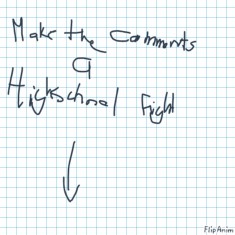 Make the Comments
a
Highschool Fight
FlipAnim